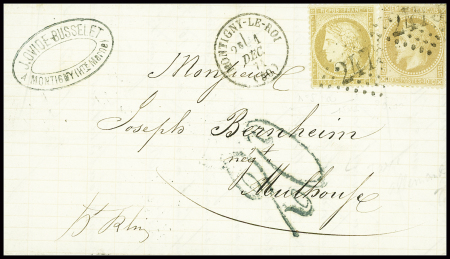 J. OVIDE-RUSSELET
A MONTIGNY (Hte MARNE)
MONTIGNY-LE-ROI
2E
4
DEC.
(50)
Monsieur
Joseph Bernheim
négt
Mulhouse
Ht Rhin